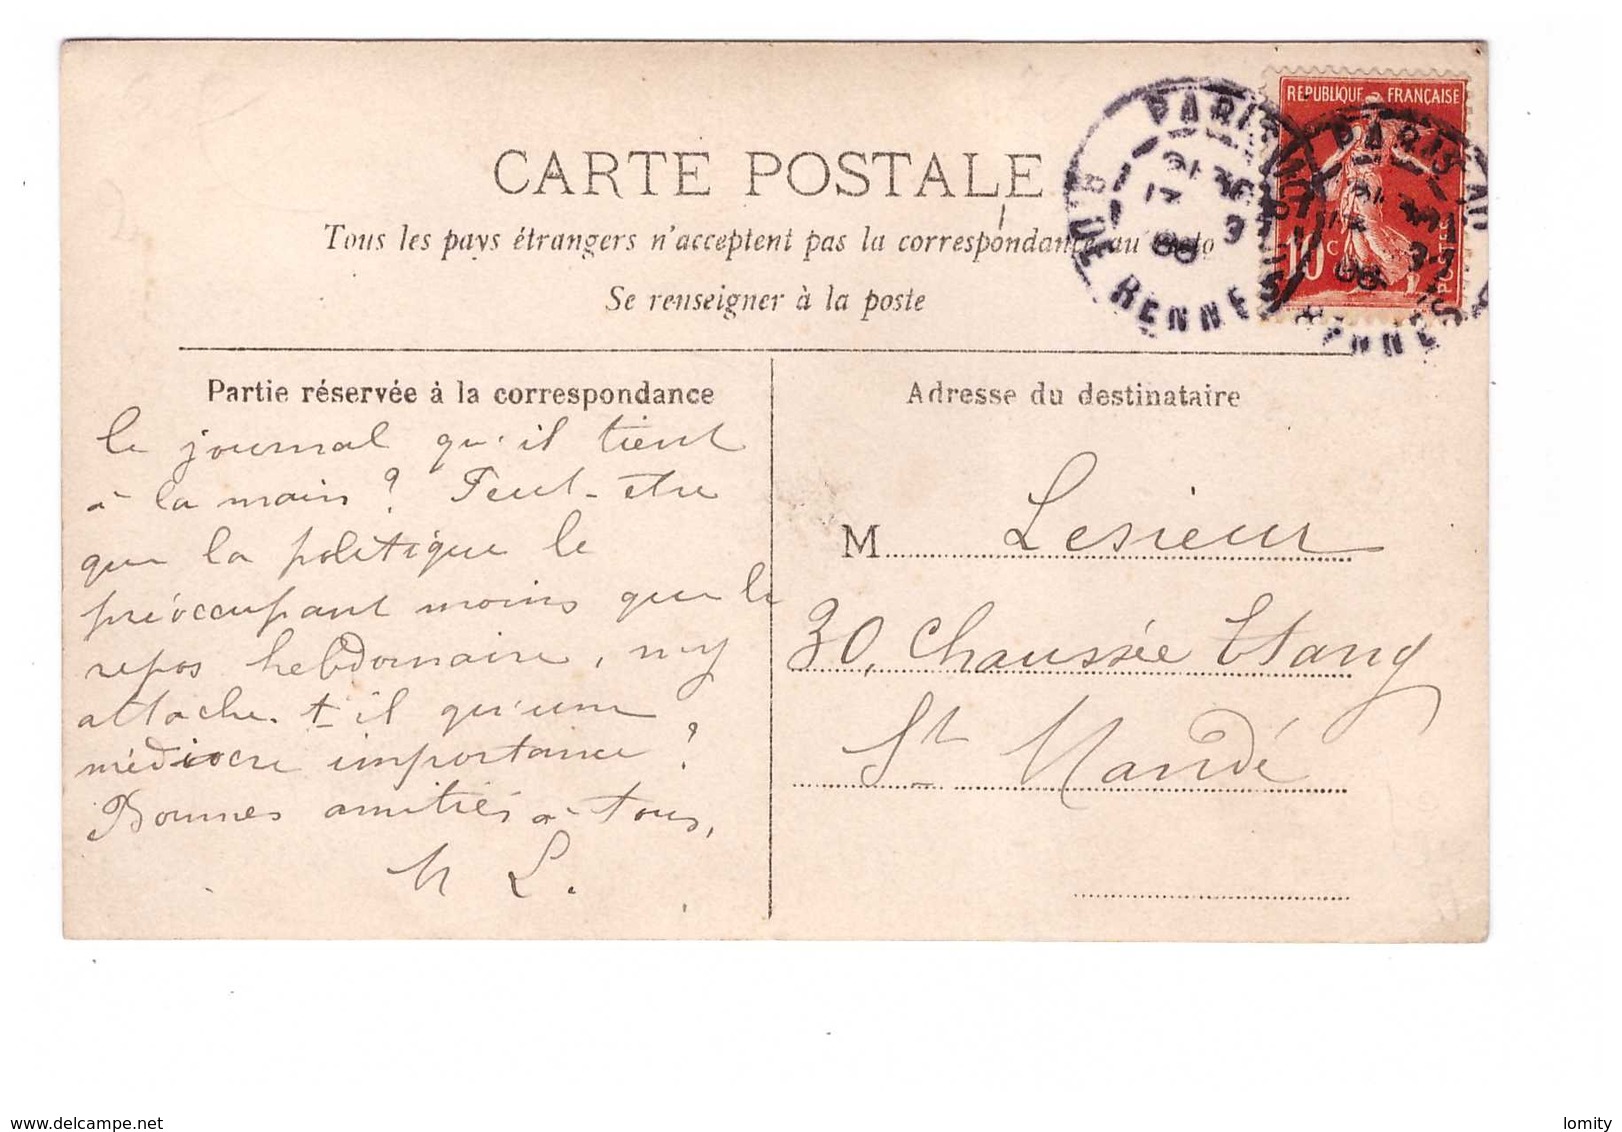 CARTE POSTALE
Tous les pays étrangers n'acceptent pas la correspondance au
Se renseigner à la poste
REPUBLIQUE FRANÇAISE
10c POSTES
PARIS
RUE DE RENNES
PARIS
Partie réservée à la correspondance
le journal qu'il tient
à la main ? Peut-être
que la politique le
préoccupant moins que le
repos hebdomaire, n'y
attache-t-il qu'une
médiocre importance ?
Bonnes amitiés à tous,
L.
Adresse du destinataire
M Lesieur
30, Chaussée Etang
St Mandé
www.delcampe.net
lomity